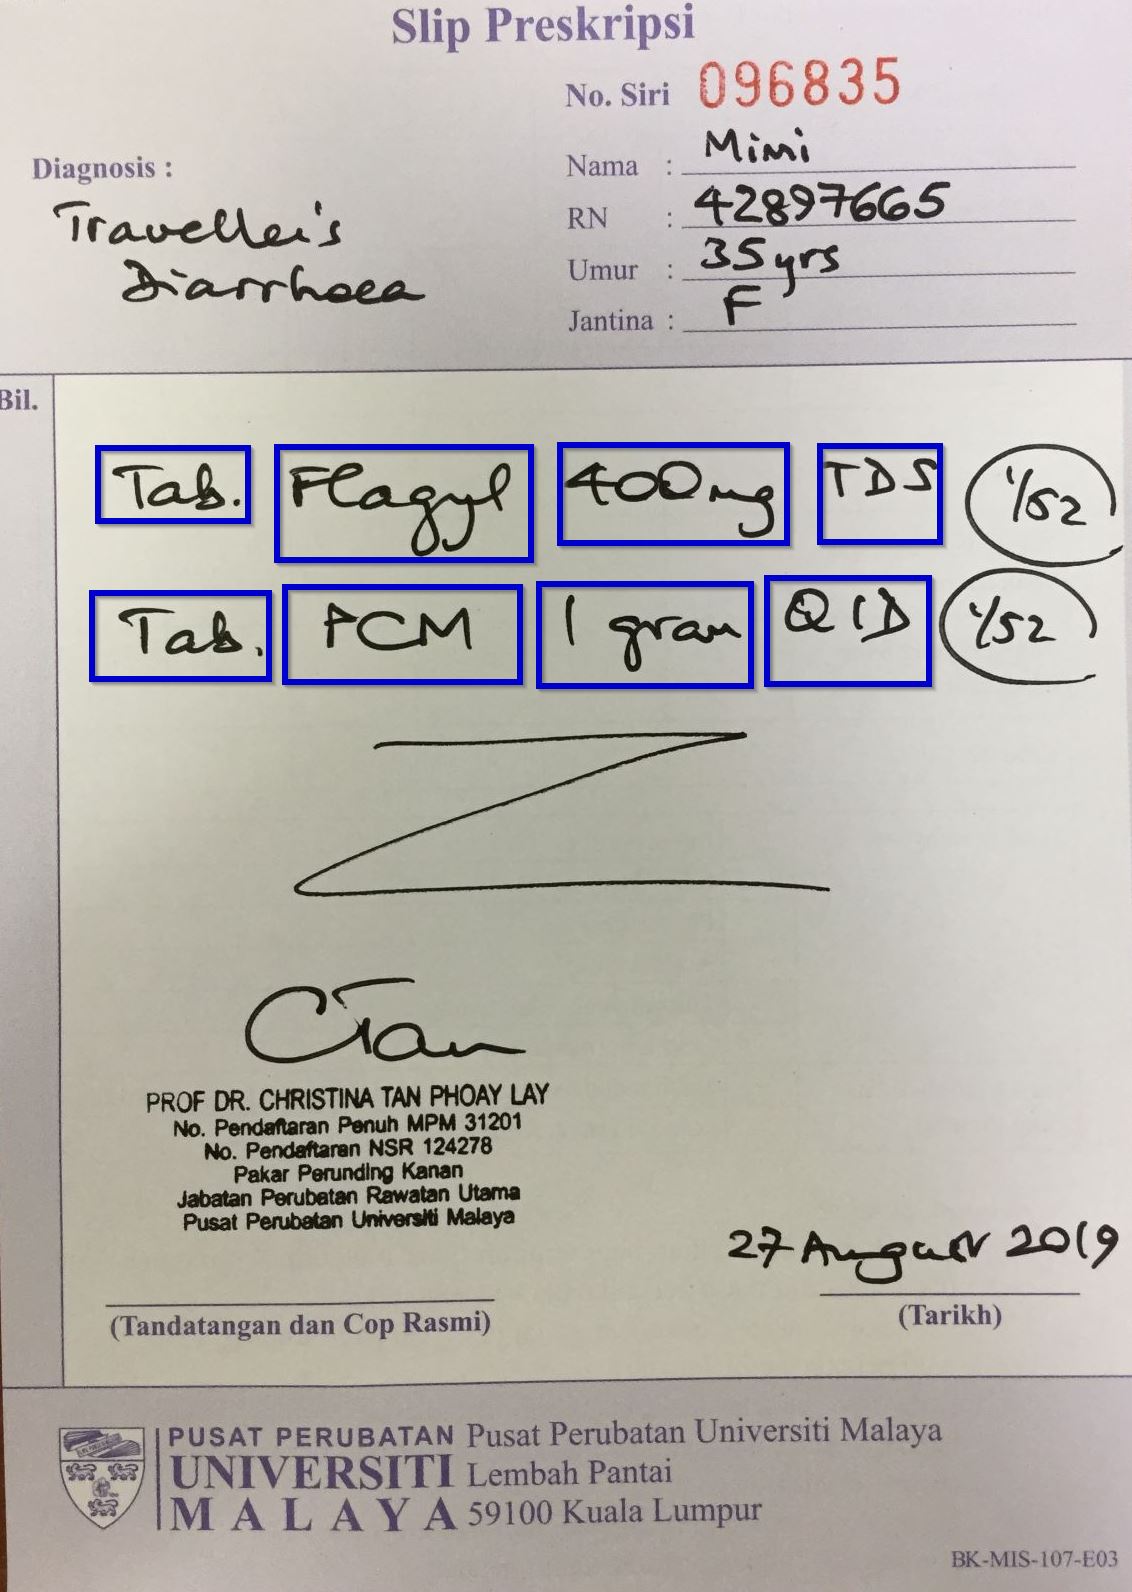 Slip Preskripsi
No. Siri 096835
Diagnosis :
Traveller's
Diarrhoea
Nama : Mimi
RN : 42897665
Umur : 35 yrs
Jantina : F
Bil.
Tab. Flagyl 400mg TDS 1/52
Tab. PCM 1 gram QID 1/52
CTan
PROF DR. CHRISTINA TAN PHOAY LAY
No. Pendaftaran Penuh MPM 31201
No. Pendaftaran NSR 124278
Pakar Perunding Kanan
Jabatan Perubatan Rawatan Utama
Pusat Perubatan Universiti Malaya
27 August 2019
(Tandatangan dan Cop Rasmi)
(Tarikh)
PUSAT PERUBATAN
UNIVERSITI
MALAYA
Pusat Perubatan Universiti Malaya
Lembah Pantai
59100 Kuala Lumpur
BK-MIS-107-E03